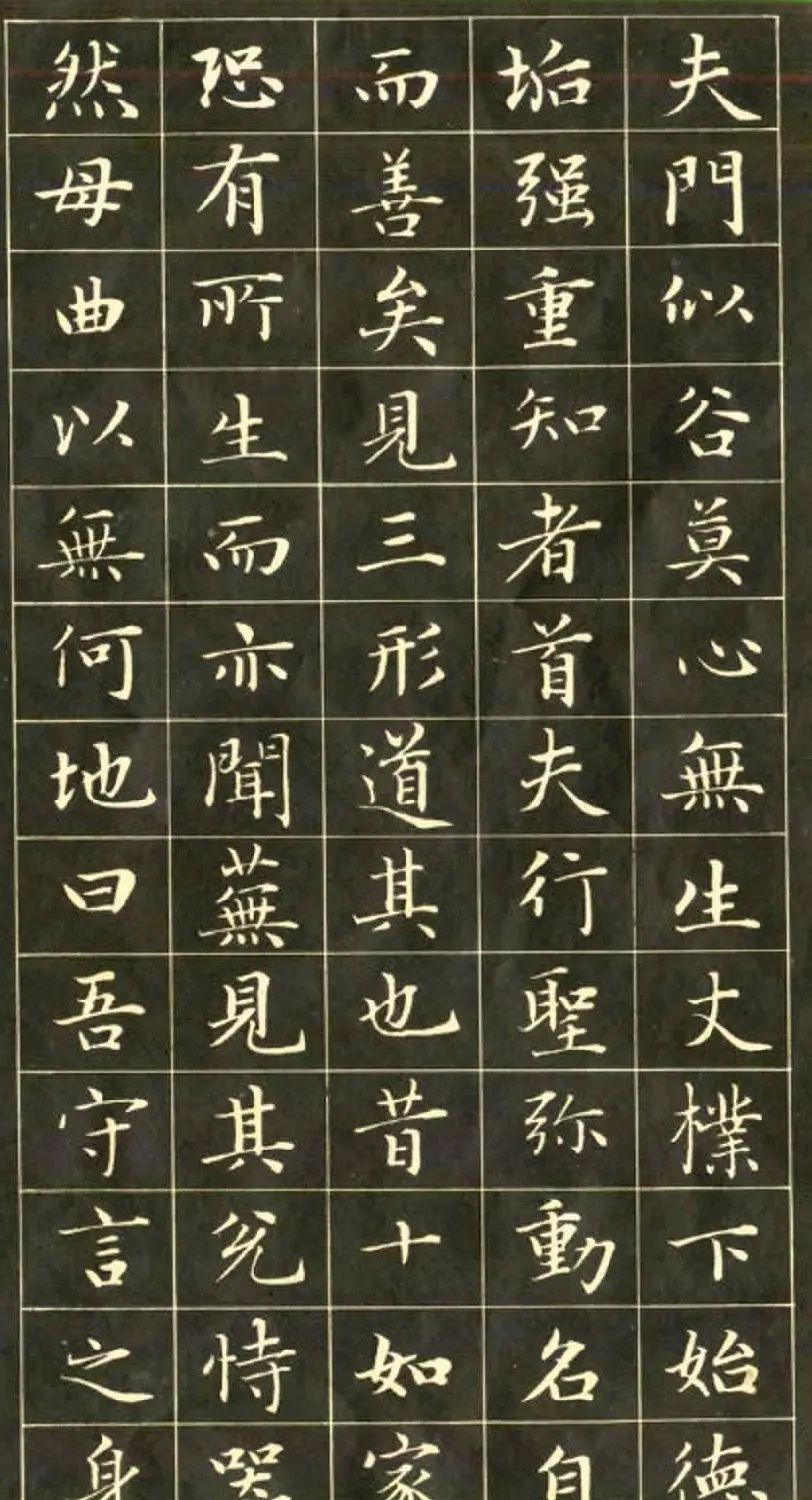 夫門似谷莫心無生丈樸下始德
垢强重知者首夫行聖弥動名自
而善矣見三形道其也昔十如家
恐有所生而亦聞蕪見其兊恃哭
然母曲以無何地曰吾守言之身